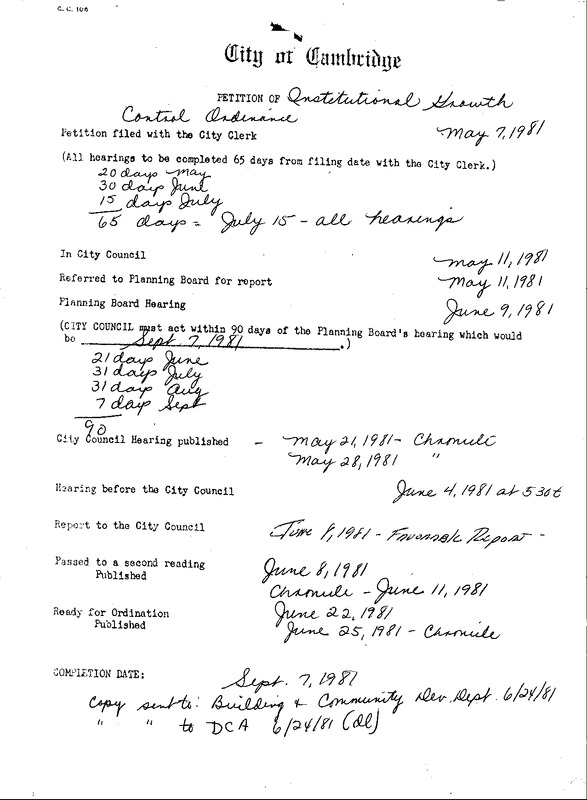 C. C. 106
City of Cambridge
PETITION OF Institutional Growth
Control Ordinance
Petition filed with the City Clerk May 7, 1981
(All hearings to be completed 65 days from filing date with the City Clerk.)
20 days May
30 days June
15 days July
65 days = July 15 - all hearings
In City Council May 11, 1981
Referred to Planning Board for report May 11, 1981
Planning Board Hearing June 9, 1981
(CITY COUNCIL must act within 90 days of the Planning Board's hearing which would
be Sept. 7, 1981.)
21 days June
31 days July
31 days Aug
7 days Sept
90
City Council Hearing published - May 21, 1981 - Chronicle
May 28, 1981 "
Hearing before the City Council June 4, 1981 at 530
Report to the City Council June 8, 1981 - Favorable Report -
Passed to a second reading June 8, 1981
Published Chronicle - June 11, 1981
Ready for Ordination June 22, 1981
Published June 25, 1981 - Chronicle
COMPLETION DATE: Sept. 7, 1981
Copy sent to: Building & Community Dev. Dept. 6/24/81
" " to DCA 6/24/81 (dl)